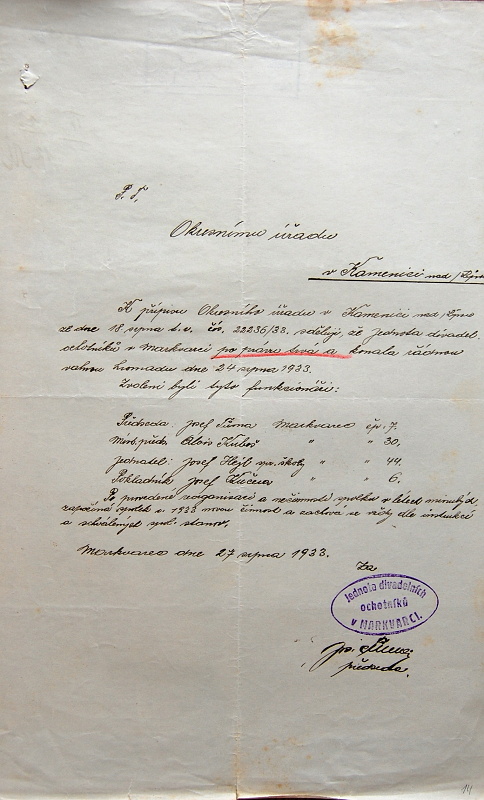 P. T.
Okresnímu úřadu
v Kamenici nad Lipou
K přípisu Okresního úřadu v Kamenici nad Lipou
ze dne 18. srpna t. r. čís. 22236/33. sděluji, že Jednota divadel.
ochotníků v Markvarci po právu trvá a konala řádnou
valnou hromadu dne 24 srpna 1933.
Zvoleni byli tyto funkcionáři:
Předseda: Josef Tůma Markvarec čp. 7.
Míst. předs. Alois Kubeš " " 30.
Jednatel: Josef Hejl spr. školy " " 44.
Pokladník Josef Kučera " " 6.
Po provedené reorganisaci a nečinnosti spolku v letech minulých,
započíná spolek v r. 1933 novou činnost a zachová se vždy dle instrukcí
a schválených spol. stanov.
Markvarec dne 27 srpna 1933.
Za
Jednota divadelních
ochotníků
v MARKVARCI.
Jos. Tůma
předseda.
14